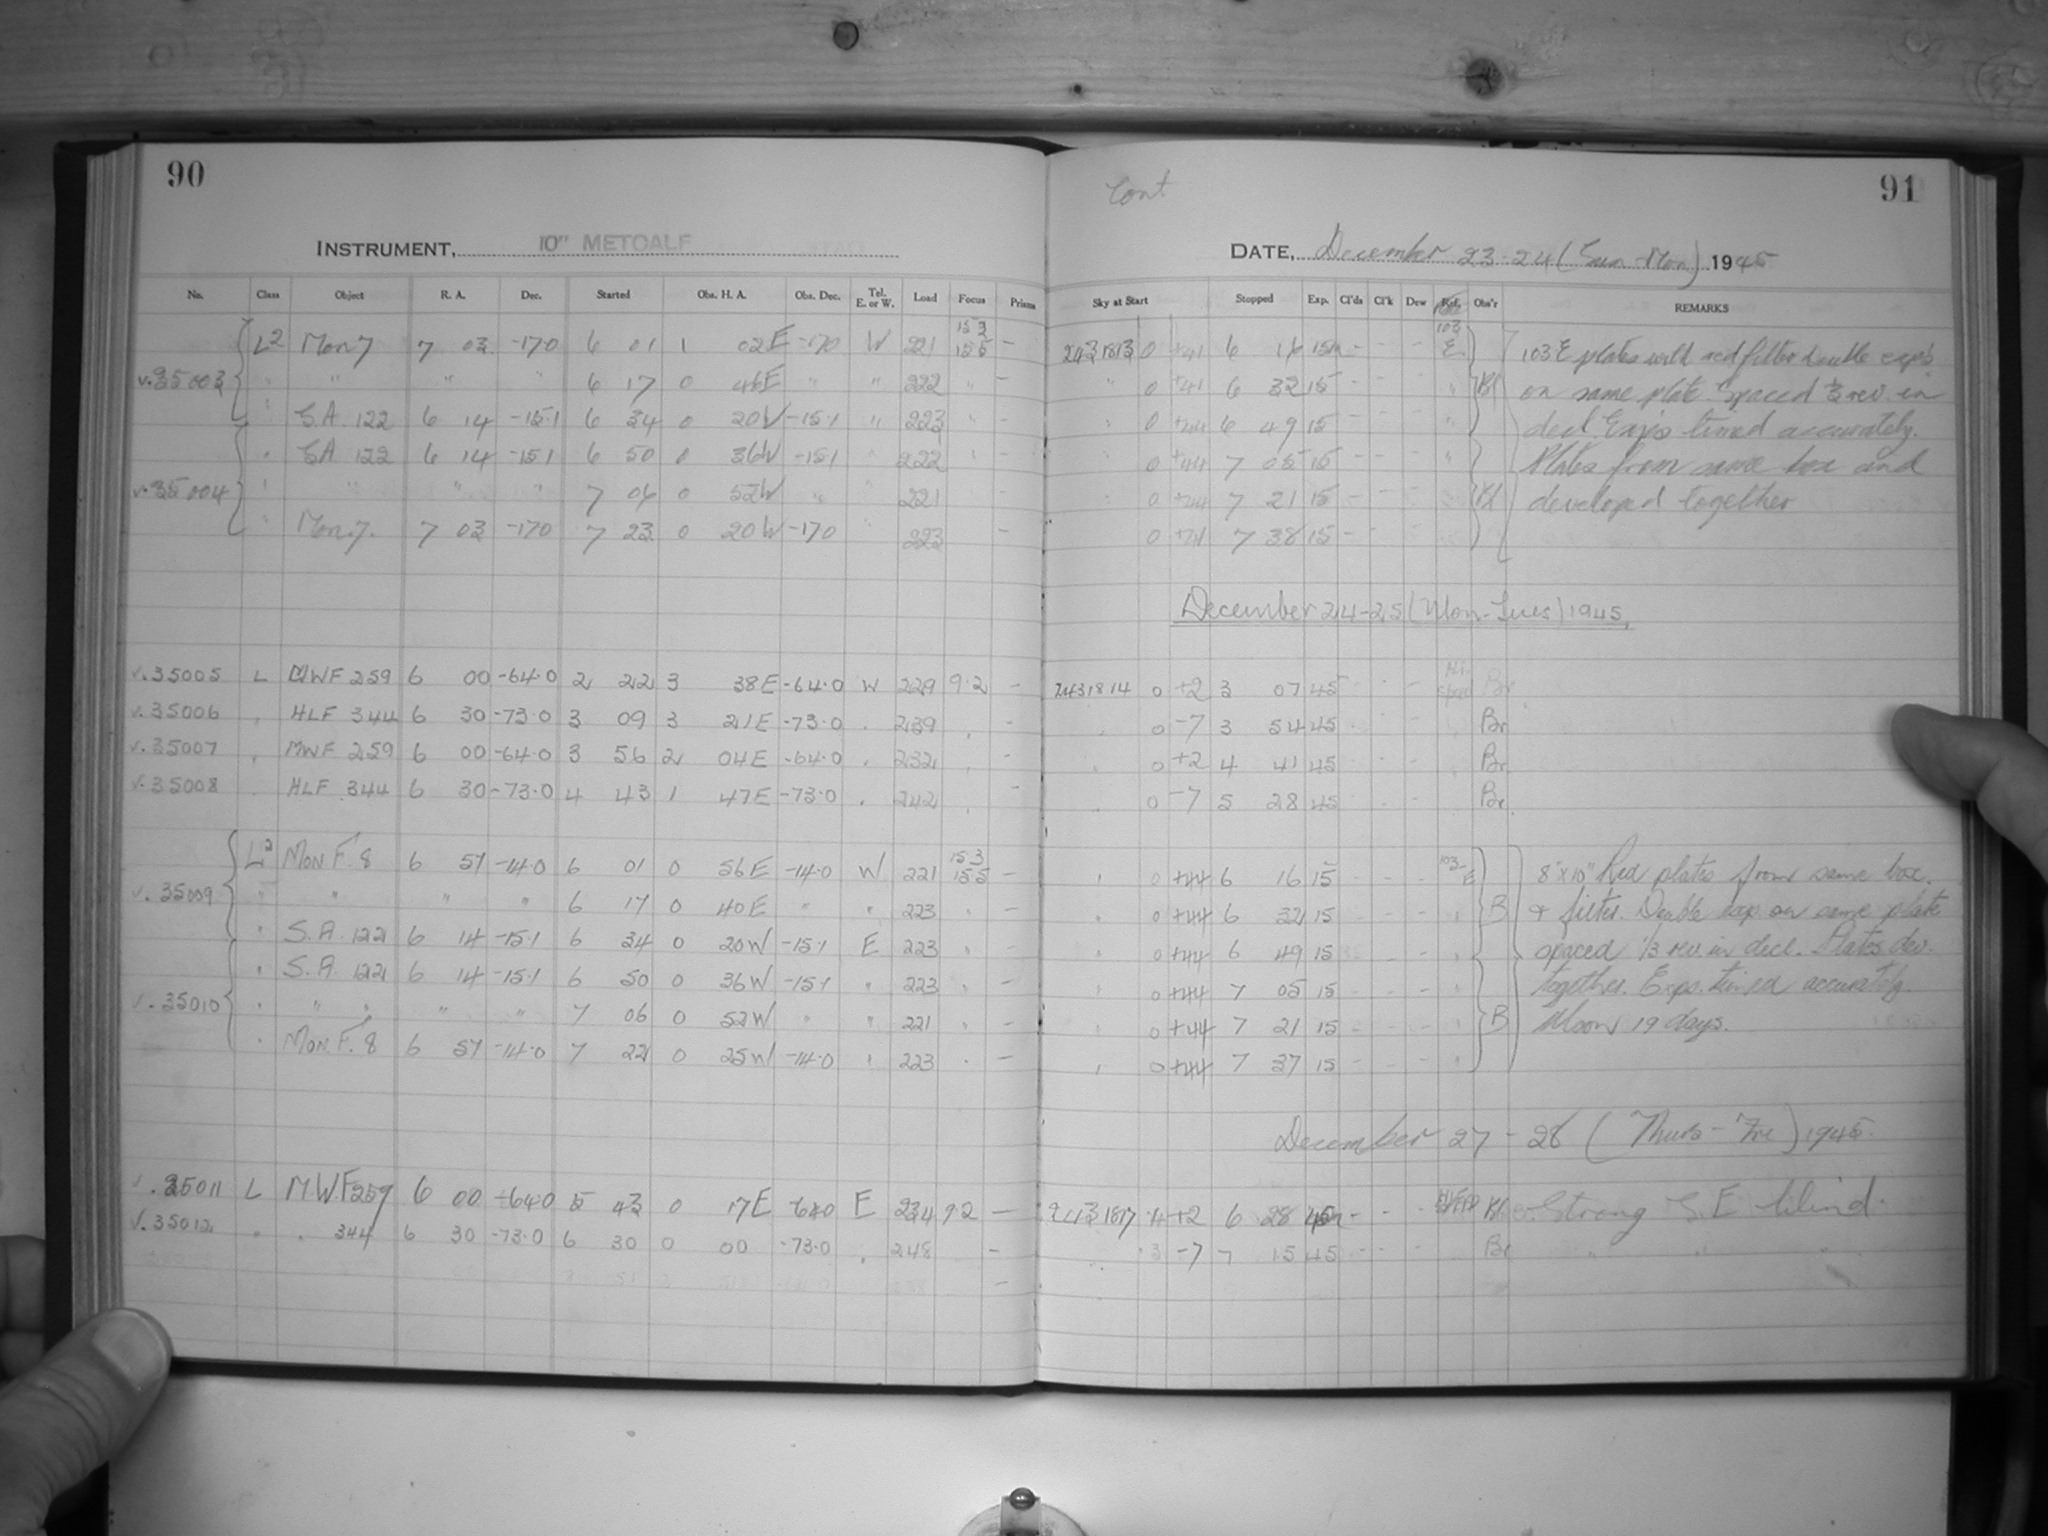 90
INSTRUMENT, 10" METCALF
No. Class Object R. A. Dec. Started Obs. H. A. Obs. Dec. Tel. E. or W. Load Focus Prisms
L2 Mon 7 7 03 -170 6 01 1 02E -170 W 221 153 155 -
v.35003 " " " " 6 17 0 46E " " 222 " -
" S.A. 122 6 14 -15.1 6 34 0 20W -15.1 " 223 " -
" SA 122 6 14 -15.1 6 50 0 36W -15.1 222 -
v.35004 " " " " 7 06 0 52W " 221
" Mon 7. 7 03 -170 7 23 0 20W -170 223 -
v.35005 L MWF 259 6 00 -64.0 2 22 3 38E -64.0 W 229 9.2 -
v.35006 " HLF 344 6 30 -73.0 3 09 3 21E -73.0 " 239 " -
v.35007 " MWF 259 6 00 -64.0 3 56 2 04E -64.0 " 232 " -
v.35008 HLF 344 6 30 -73.0 4 43 1 47E -73.0 " 242 " -
L2 Mon F. 8 6 57 -14.0 6 01 0 56E -14.0 W 221 153 155 -
v.35009 " " " " 6 17 0 40E " " 223 " -
" S.A. 122 6 14 -15.1 6 34 0 20W -15.1 E 223 " -
" S.A. 122 6 14 -15.1 6 50 0 36W -15.1 " 223 " -
v.35010 " " " " " 7 06 0 52W " " 221 " -
" Mon. F. 8 6 57 -14.0 7 22 0 25W -14.0 " 223 " -
v.35011 L M.W.F 259 6 00 -64.0 5 43 0 17E -64.0 E 234 9.2 -
v.35012 " " 344 6 30 -73.0 6 30 0 00 -73.0 " 248 -
Cont
91
DATE, December 23-24 (Sun-Mon) 1945
Sky at Start Stopped Exp. Cl'ds Cl'k Dew Obs'r REMARKS
2431813 0 +41 6 16 15m - - - 103 E 103E plates with red filter double exp's
" 0 +41 6 32 15 - - - " Bl on same plate spaced 1/3 rev. in
" 0 +44 6 49 15 - - - " decl. Exp's timed accurately.
0 +44 7 05 15 - - - " Plates from same box and
" 0 +44 7 21 15 - - - " Bl developed together
0 +41 7 38 15 -
December 24-25 (Mon-Tues) 1945.
2431814 0 +2 3 07 45 - - - Br
" 0 -7 3 54 45 - - - Br
" 0 +2 4 41 45 - - - Br
" 0 -7 5 28 45 - - - Br
" 0 +44 6 16 15 - - - 103-E 8"x10" Red plates from same box.
" 0 +44 6 32 15 - - - " B & filter. Double exp. on same plate
" 0 +44 6 49 15 - - - " spaced 1/3 rev. in decl. Plates dev.
" 0 +44 7 05 15 - - - " together. Exps. timed accurately.
" 0 +44 7 21 15 - - - " B Moon 19 days.
" 0 +44 7 37 15 - - - "
December 27-28 (Thurs-Fri) 1945.
2431817 4 +2 6 28 45m - - - Bl Strong S.E Wind.
3 -7 7 15 45 - - - Br " " "